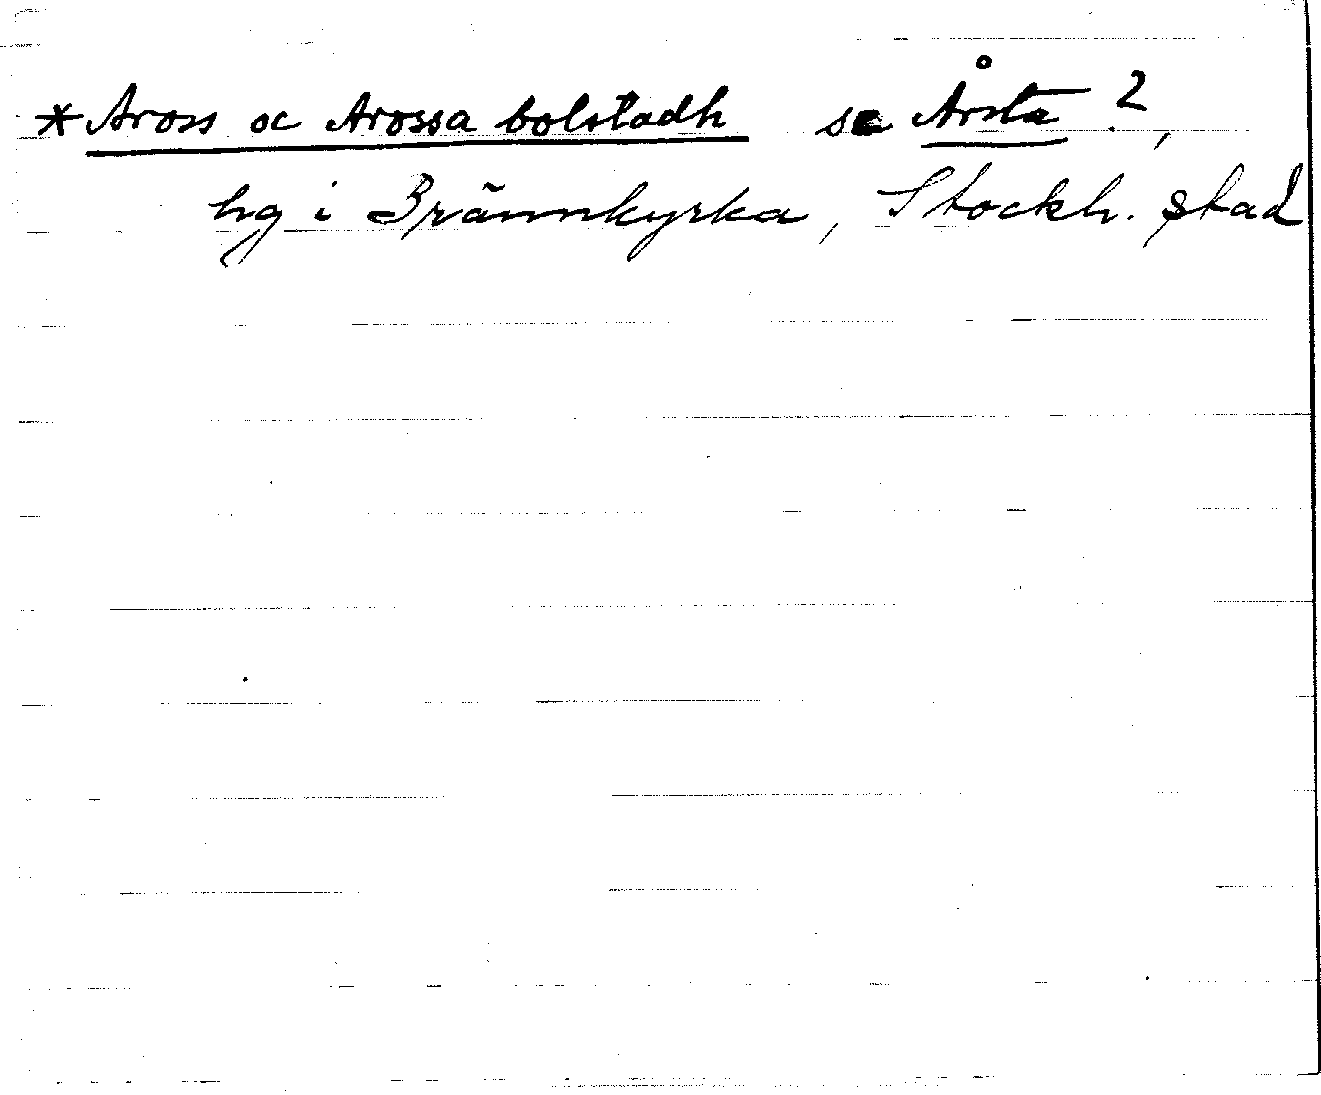 *Aross oc Arossa bolstadh se Årsta ?,
hg i Brännkyrka, Stockh. stad